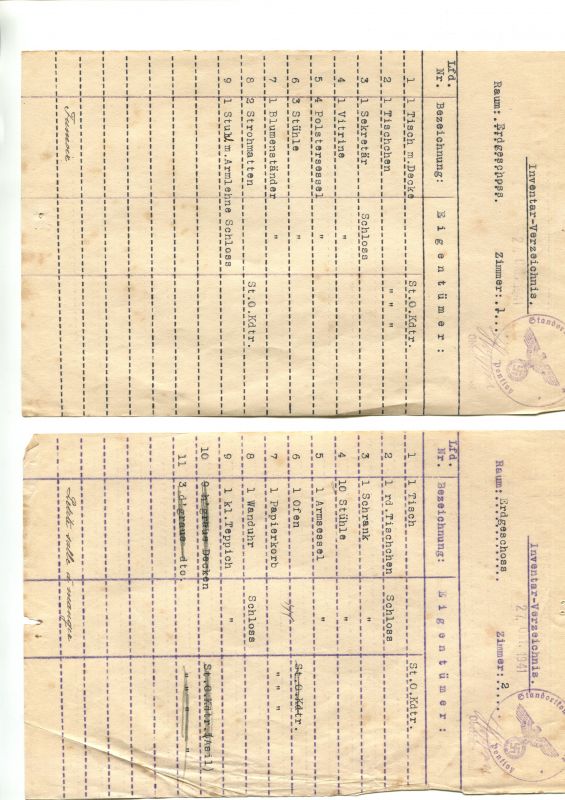 Inventar-Verzeichnis.
Raum: Erdgeschoss. Zimmer: 1
Lfd.
Nr. Bezeichnung: Eigentümer:
1 1 Tisch m.Decke St.O.Kdtr.
2 1 Tischchen " " "
3 1 Sekretär Schloss
4 1 Vitrine "
5 4 Polstersessel "
6 3 Stühle "
7 1 Blumenständer "
8 2 Strohmatten St.O.Kdtr.
9 1 Stuhl m.Armlehne Schloss
Fumoir
Standort
Pontivy
Inventar-Verzeichnis.
1941
Raum: Erdgeschoss Zimmer: 2
Lfd.
Nr. Bezeichnung: Eigentümer:
1 1 Tisch St.O.Kdtr.
2 1 rd.Tischchen Schloss
3 1 Schrank "
4 10 Stühle "
5 1 Armsessel "
6 1 Ofen St.O.Kdtr.
7 1 Papierkorb " " "
8 1 Wanduhr Schloss
9 1 kl.Teppich "
10 Decken St.O.Kdtr.
11 3 d'graue dto. " " " "
Petite salle à manger
Pontivy